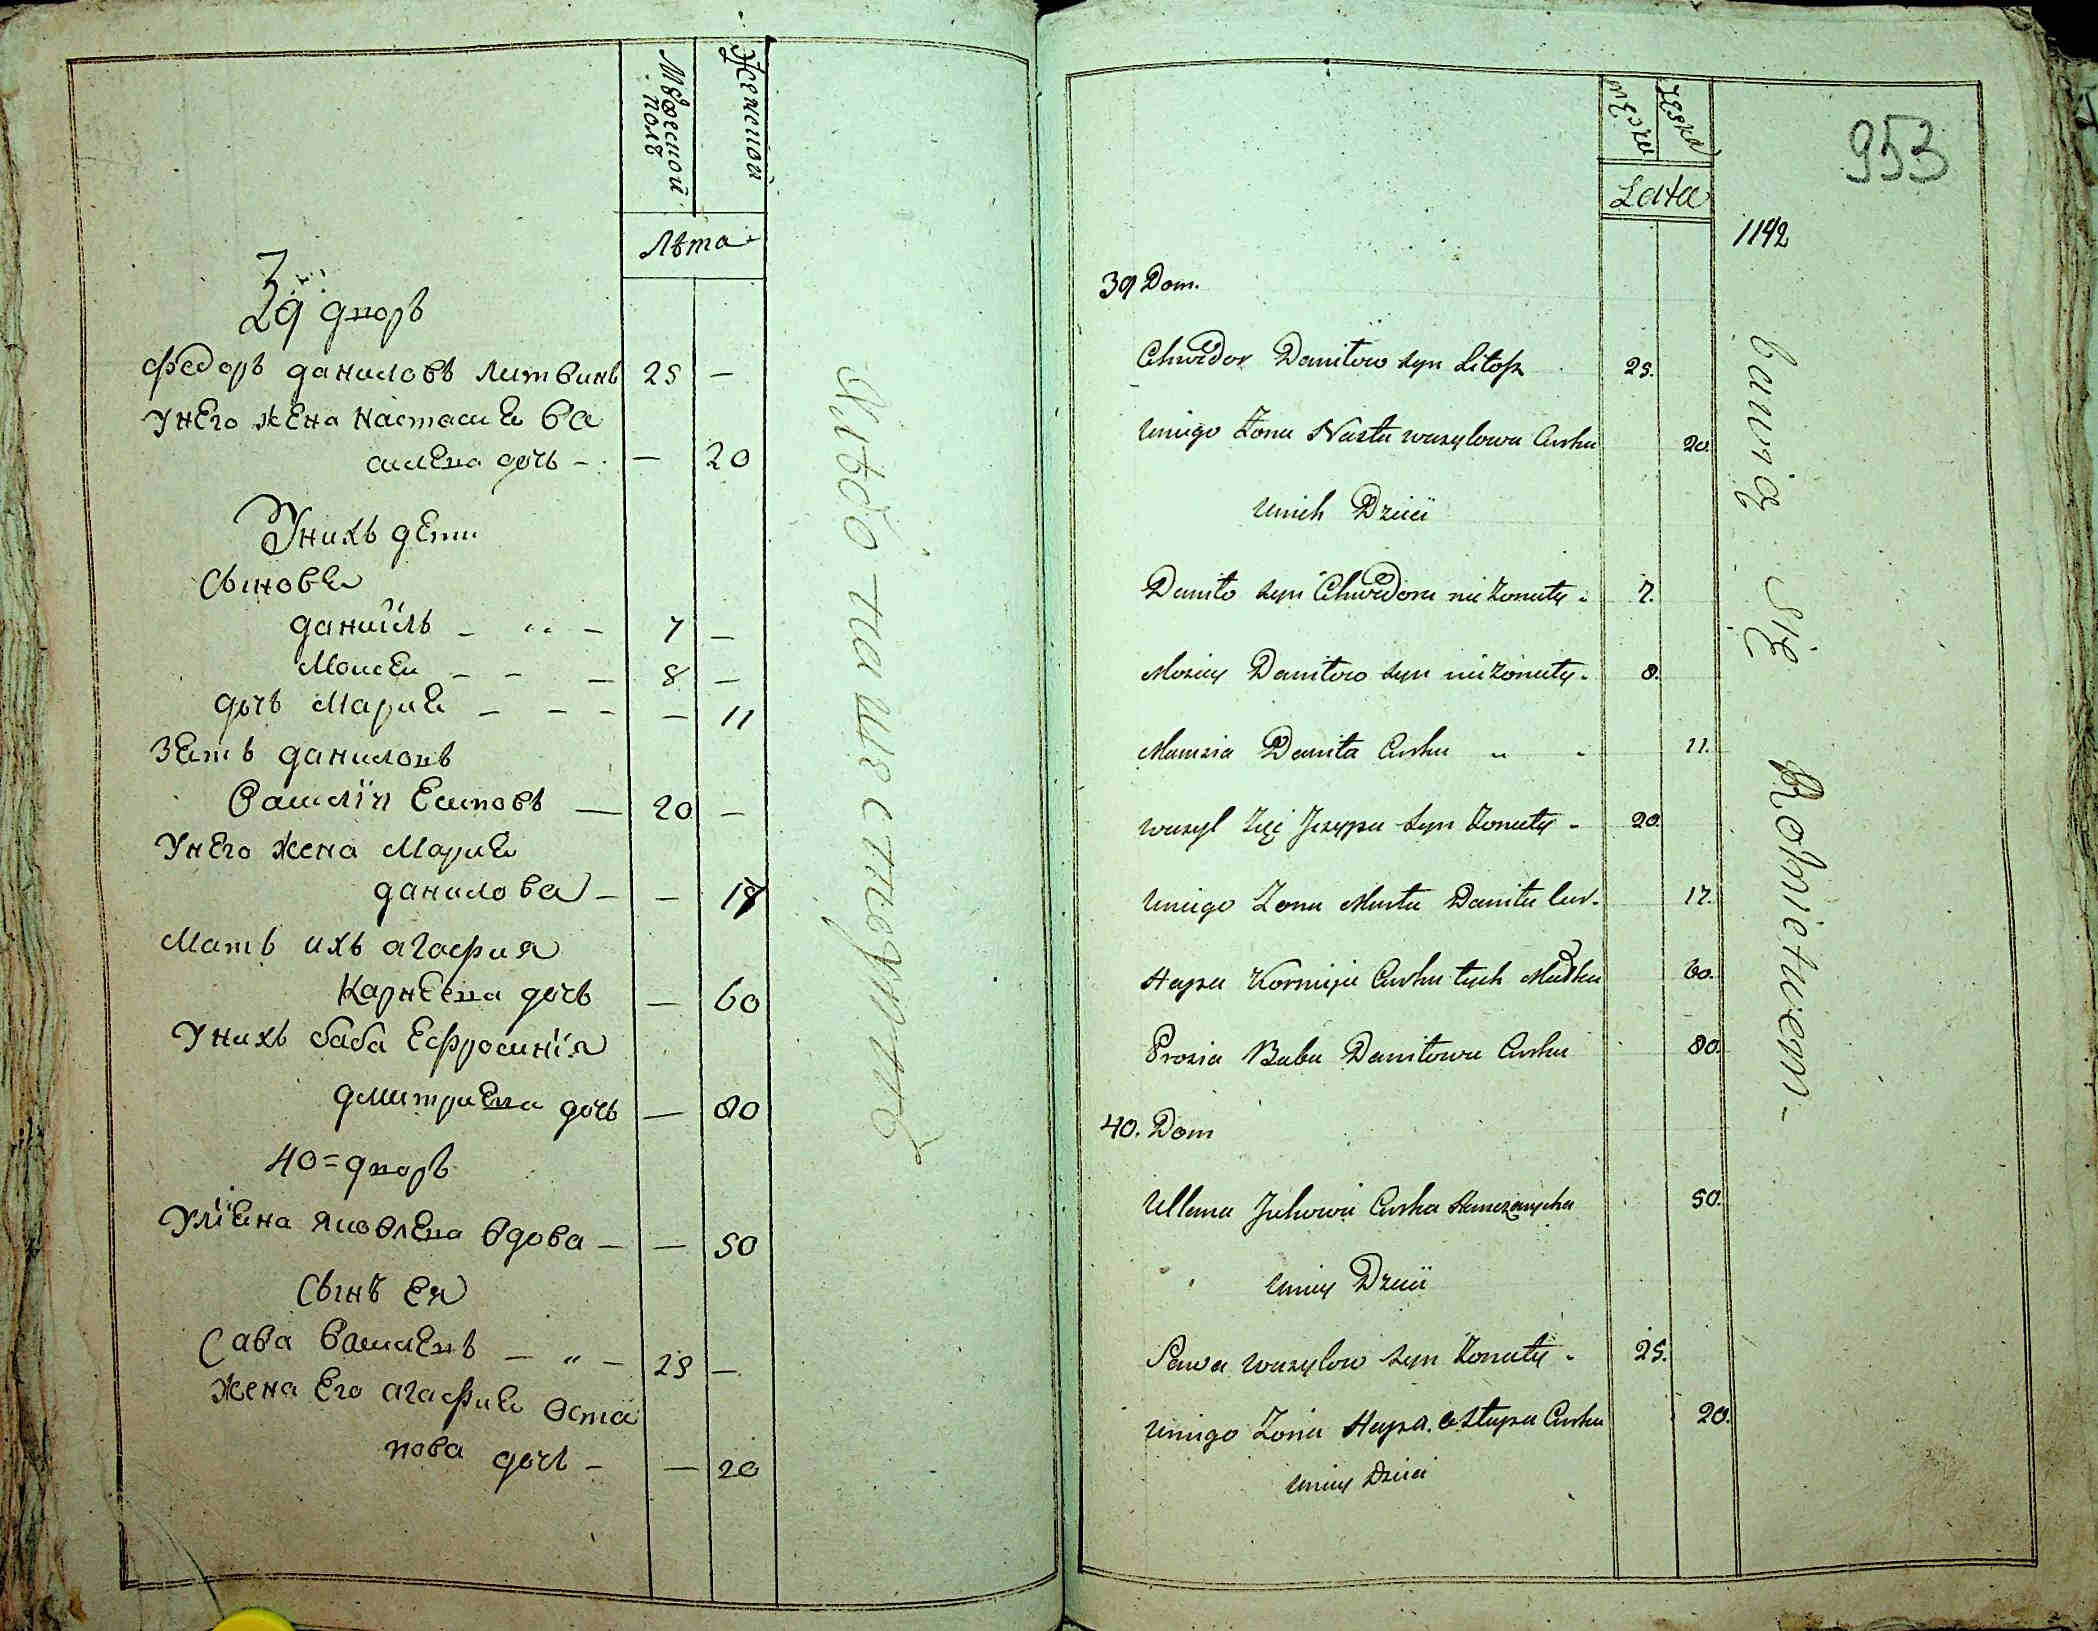 Мужеской полъ
Женской
Лѣта
39 дворъ
Федоръ даниловъ Литвинъ 25 —
Унего жена Настасия ва
силева дочь — — 20
Унихъ дети
Сыновя
даниилъ — 7 —
Моисеи — — — 8 —
дочь Мария — — — — 11
Зять даниловъ
Василій Есиповъ — 20 —
Унего жена Мария
данилова — — 17
Мать ихъ агафия
Карнѣева дочь — 60
Унихъ баба Ефросинія
дмитриева дочь — 80
40 = дворъ
Улияна Яковлева вдова — — 50
Сынъ ея
Сава василевъ — " — 25 —
Жена Его агафия Оста
пова дочь — — 20
Хлѣбопашествуютъ
953
Męzka
Żęzka
Lata
1142
39 Dom.
Chwedor Daniłow syn Litosz 25.
Uniego Zona Nasta wasylowa Curka 20.
Unich Dzieci
Daniło syn Chwedora nie Zonaty. 7.
Mosiey Daniłow syn nie zonaty. 8.
Marysia Daniła Curka " - 11.
wasyl Zięć Jesypa syn Zonaty - 20.
Uniego Zona Marta Daniła Cur. 17.
Hapa Kornieja Curka tych Matka 60.
Prosia Baba Daniłowa Curka 80.
40. Dom
Ullana Jakowa Curka 50.
Uniey Dzieci
Sawa wasylow syn Zonaty - 25.
Uniego Zona Hapa. Astapa Curka 20.
Uniey Dzieci
bawią Się Rolnictwem -